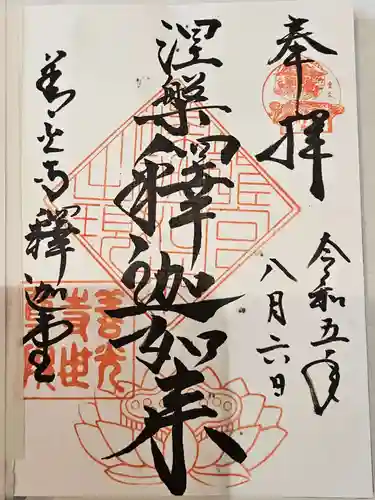 奉拝
令和五年
八月六日
涅槃釋迦如来
善光寺釋迦堂